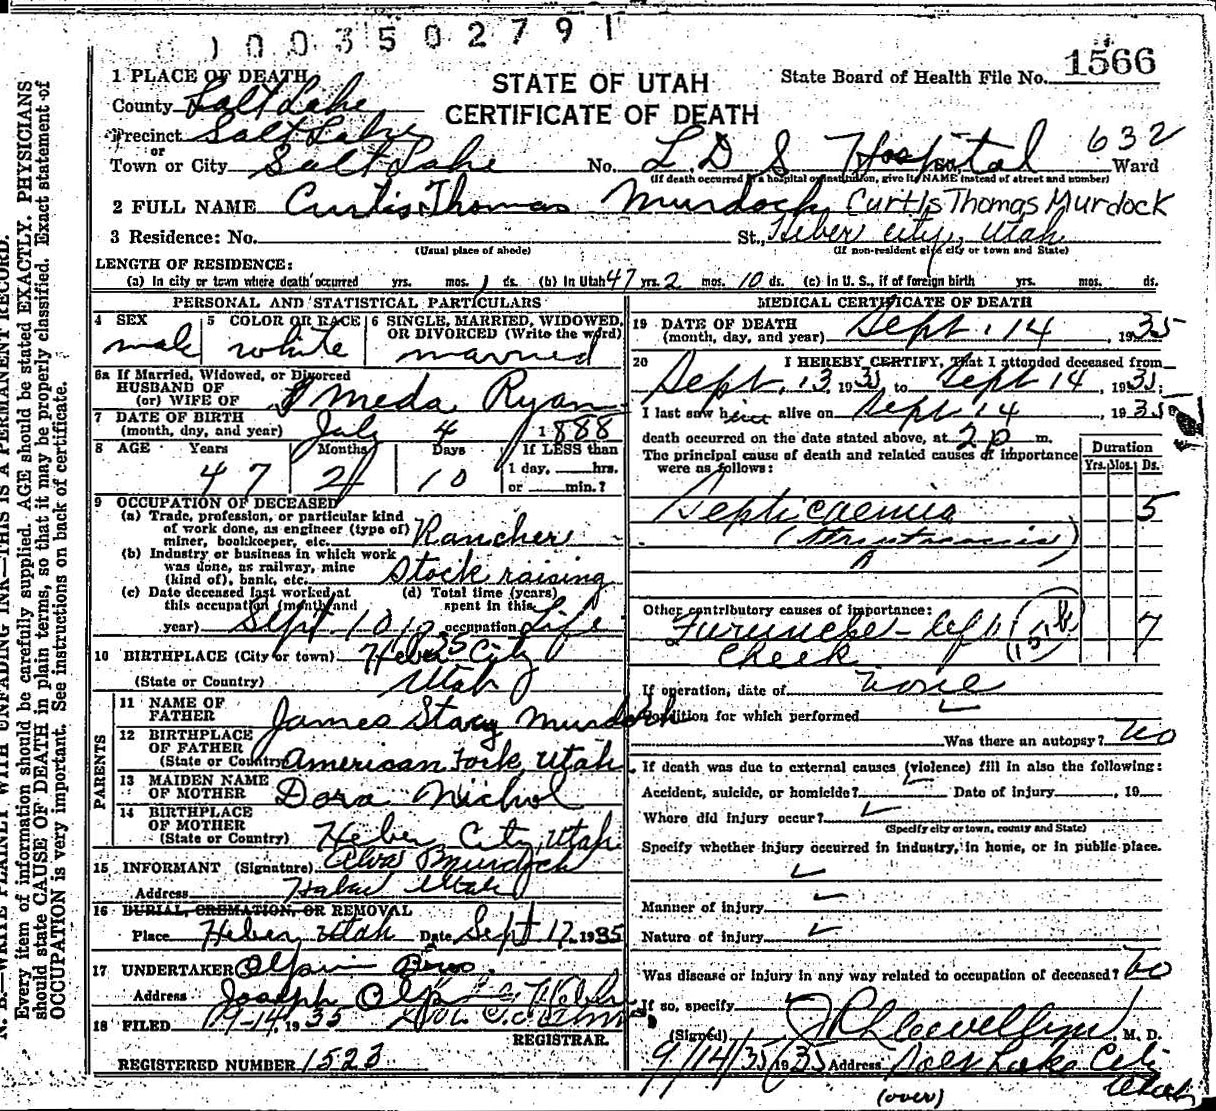 1003502791
1566
STATE OF UTAH
CERTIFICATE OF DEATH
State Board of Health File No. 1566
1 PLACE OF DEATH
County Salt Lake
Precinct Salt Lake
or
Town or City Salt Lake No. L D S Hospital St., 632 Ward
(If death occurred in a hospital or institution, give its NAME instead of street and number)
2 FULL NAME Curtis Thomas Murdock Curtis Thomas Murdock
3 Residence: No. St., Heber City, Utah
(Usual place of abode) (If non-resident give city or town and State)
LENGTH OF RESIDENCE:
(a) In city or town where death occurred yrs. mos. 1 ds. (b) In Utah 47 yrs. 2 mos. 10 ds. (c) In U. S., if of foreign birth yrs. mos. ds.
PERSONAL AND STATISTICAL PARTICULARS
4 SEX 5 COLOR OR RACE 6 SINGLE, MARRIED, WIDOWED,
OR DIVORCED (Write the word)
male white married
6a If Married, Widowed, or Divorced
HUSBAND OF
(or) WIFE OF Meda Ryan
7 DATE OF BIRTH
(month, day, and year) July 4 1888
8 AGE Years Months Days If LESS than
1 day, hrs.
or min.?
47 2 10
9 OCCUPATION OF DECEASED
(a) Trade, profession, or particular kind
of work done, as engineer (type of)
miner, bookkeeper, etc. Rancher
(b) Industry or business in which work
was done, as railway, mine
(kind of), bank, etc. Stock raising
(c) Date deceased last worked at
this occupation (month and
year) Sept 10 1935
(d) Total time (years)
spent in this
occupation Life
10 BIRTHPLACE (City or town) Heber City
(State or Country) Utah
PARENTS
11 NAME OF
FATHER James Stacy Murdock
12 BIRTHPLACE
OF FATHER
(State or Country) American Fork, Utah
13 MAIDEN NAME
OF MOTHER Dora Nichol
14 BIRTHPLACE
OF MOTHER
(State or Country) Heber City, Utah
15 INFORMANT (Signature) Alva Murdock
Address Heber Utah
16 BURIAL, CREMATION, OR REMOVAL
Place Heber, Utah Date Sept 17, 1935
17 UNDERTAKER Olpin Bros.
Address Joseph Olpin Heber
18 FILED 9-14, 1935
REGISTRAR.
REGISTERED NUMBER 1523
MEDICAL CERTIFICATE OF DEATH
19 DATE OF DEATH
(month, day, and year) Sept. 14, 1935
20 I HEREBY CERTIFY, That I attended deceased from
Sept. 13, 1935, to Sept 14, 1935.
I last saw him alive on Sept 14, 1935
death occurred on the date stated above, at 2 p m.
The principal cause of death and related causes of importance
were as follows:
Duration
Yrs. Mos. Ds.
Septicaemia 5
Other contributory causes of importance:
Furuncle - left 7
cheek
If operation, date of none
Condition for which performed
Was there an autopsy? no
If death was due to external causes (violence) fill in also the following:
Accident, suicide, or homicide? Date of injury , 19
Where did injury occur?
(Specify city or town, county and State)
Specify whether injury occurred in industry, in home, or in public place.
Manner of injury
Nature of injury
Was disease or injury in any way related to occupation of deceased? no
If so, specify
(Signed) J P Llewellyn, M. D.
9/14/35 1935 Address Salt Lake City
Utah
(over)
N. B.—WRITE PLAINLY WITH UNFADING INK—THIS IS A PERMANENT RECORD.
Every item of information should be carefully supplied. AGE should be stated EXACTLY. PHYSICIANS
should state CAUSE OF DEATH in plain terms, so that it may be properly classified. Exact statement of
OCCUPATION is very important. See instructions on back of certificate.